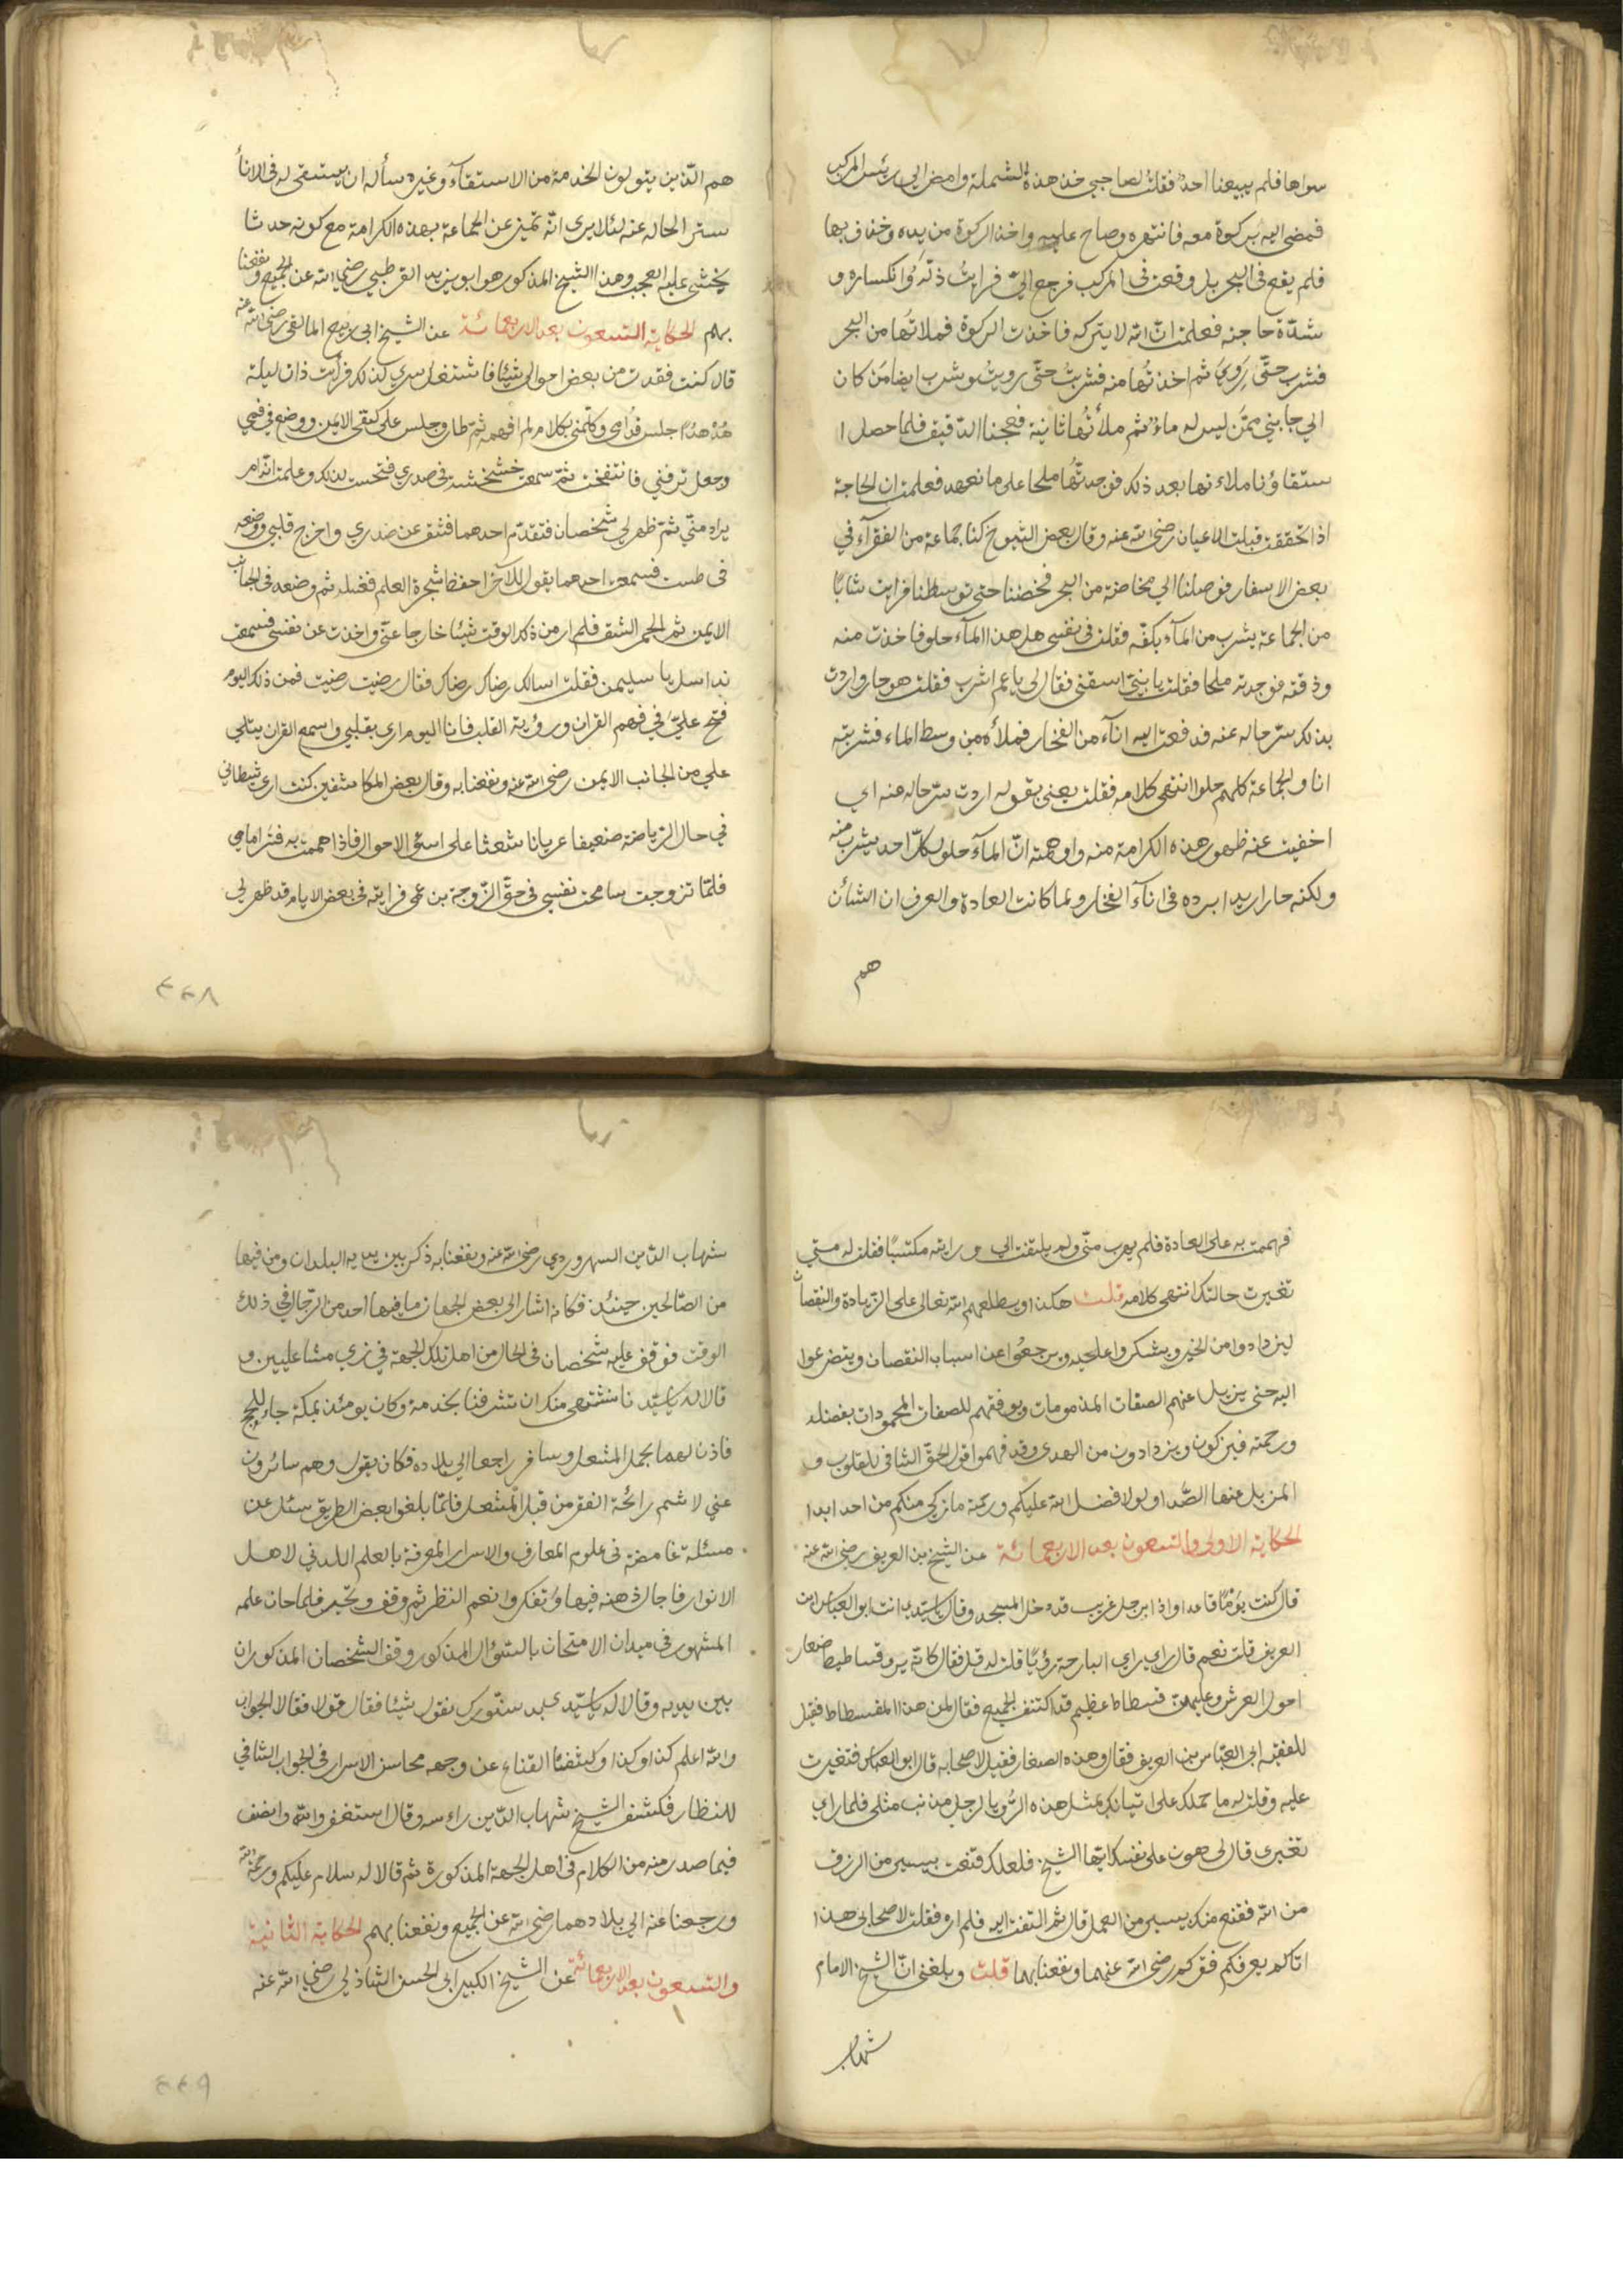 سواها فلم يبيعنا احد فقلت لصاحبي خذ هذه الشملة وامض الى رئيس المركب
فمضى اليه بركوة معه فانتهره وصاح عليه واخذ الركوة من يده وخذف بها
فلم يقع في البحر بل وقعت في المركب فرجع اليّ فرايت ذلّه وانكساره و
شدّة حاجته فعلمت انّ الله لا يتركه فاخذت الركوة فملاتُها من البحر
فشرب حتّى رَوِيَ ثم اخذتُها منه فشربتُ حتّى رويتُ وشرب ايضا من كان
الي جانبي ممّن ليس له ماءٌ ثم ملأتُها ثانية فعجنا الدقيق فلما حصل ا
ستقاؤنا ملاءنها بعد ذلك فوجدتُها ملحا على ما نعهد فعلمت ان الحاجة
اذا تحققت قبلت الاعيان رضي الله عنه وقال بعض الشيوخ كنا جماعة من الفقرآء في
بعض الاسفار فوصلنا الي مخاضة من البحر فخضنا حتى توسطنا فرايت شابًا
من الجماعة يشرب من المآء بكفّه فقلت في نفسي هل هذا المآء حلو فاخذت منه
وذقته فوجدته ملحا فقلت يا بنيّ اسقني فقال لي يا عم اشرب فقلت هو حار واردت
بذلك ستر حاله عنه فدفعت اليه انآء من الفخار فملأه من وسط الماء فشربته
انا والجماعة كلهم حلوا انتهى كلامه فقلت يعني بقوله اردت ستر حاله عنه اي
اخفيت عنه ظهور هذه الكرامة منه واوهمته انّ المآء حلو لكل احد يشرب منه
ولكنه حار اريد ابرده في انآء الفخار ولما كانت العادة والعرف ان الشأن
هم
هم الذين يتولون الخدمة من الاستقآء وغيره سأله ان يستقي له في الانأ
ستر الحاله عنه لئلا يرى انّه تميز عن الجماعة بهذه الكرامة مع كونه حدثا
يخشى عليه العجب وهذا الشيخ المذكور هو ابو يزيد القرطبي رضي الله عن الجميع ونفعنا
بهم الحكاية التسعون بعد الاربعمائة عن الشيخ ابي ربيع المالقي رضي الله عنه
قال كنت فقدت من بعض احوالي شيئا فاشتغل سري كذلك فرأيت ذات ليلة
هُدْهدًا جلس قُدّامي وكلّمني بكلام لم افهمه ثم طار وجلس على كتفي الايمن ووضع في فمي
وجعل ترفني فانتفخت ثمّ سمعت خشخشة في صدري فتحست لذلك وعلمت انّه امر
يراد منّي ثمّ ظهر لي شخصان فتقدّم احدهما فشق عن صدري واخرج قلبي ووضعه
في طست فسمعت احدهما يقول للآخر احفظ شجرة العلم فغسله ثم وضعه في الجانب
الايمن ثم التحم الشق فلم ار من ذلك الوقت شيئا خارجا عنّي واخذت عن نفسي فسمعت
ندا سل يا سليمن فقلت اسالك رضاك رضاك فقال رضيت رضيت فمن ذلك اليوم
فتح عليّ في فهم القران ورؤية القلب فانا اليوم ارى بقلبي واسمع القران يتلي
علي من الجانب الايمن رضي الله عنه ونفعنا به وقال بعض المكاشفين كنت ارى شيطاني
في حال الرياضة ضعيفا عريانا شعثا على اسوئ الاحوال فاذا هممت به فتر امامي
فلمّا تزوجت سامحت نفسي في حقّ الزوجة بن عمي فرايته في بعض الايام قد ظهر لي
٤٤٨
فهممت به على العادة فلم يهرب منّي ولم يلتفت الي ورايته مكتسبًا فقلت له متي
تغيرت حالتك انتهى كلامه قلت هكذا ويطلعهم الله تعالى على الزيادة والنقصان
ليزدادوا من الخير ويشكروا عليه ويرجعُوا عن اسباب النقصان ويتضرعوا
اليه حتى يزيل عنهم الصفات المذمومات ويوفقهم للصفات المحمودات بفضله
ورحمته فيزكون ويزدادون من الهدى وقد فهموا قول الحقّ الشافي للقلوب و
المزيل عنها الصّدا ولولا فضل الله عليكم ورحمته ما زكى منكم من احد ابدا
الحكاية الاولى والتسعون بعد الاربعمائة عن الشيخ بن العريف رضي الله عنه
قال كنت يومًا قاعدا واذا برجل غريب قد دخل المسجد وقال يا سيّدي انت ابو العباس ابن
العريف قلت نعم قال راي البارحة رؤيًا قلت له قل فقال كانه يرى فساطيط صغار
احول العرش وعليهنّ فسطاط عظيم قد اكتنف الجميع فقال لمن هذا الفسطاط فقيل
للفقيه ابي العبّاس بن العريف فقال وهذه الصغار فقيل لاصحابه قال ابو العباس فتغيرت
عليه وقلت له ما حملك على اتيانك بمثل هذه الرُّويا لرجل مذنب مثلي فلما راي
تغيري قال لي هون على نفسك ايّها الشيخ فلعلك قنعت بيسير من الرزق
من الله فقنع منك بيسير من العمل قال ثم التفت اليه فلم اره فقلت لاصحابي هذا
اتاكم يعرفكم فقركم رضي الله عنهما ونفعنا بهما قلت وبلغني انّ الشيخ الامام
شهاب
شهاب الدّين السهروردي رضي الله عنه ونفعنا به ذكر بين يديه البلدان ومن فيها
من الصّالحين حينئذ فكانه اشار الى بعض الجهات ما فيها احد من الرّجال في ذلك
الوقت فوقف عليه شخصان في الحال من اهل تلك الجهة في زي مشاعليين و
قالا له يا سيّدنا نشتهي منك ان تشرفنا بخدمة وكان يومئذ بمكة جاء للحج
فاذن لهما بحمل المشعل وسافر راجعا الي بلاده فكان يقول وهم سائرون
عني لاشم رائحة الفقر من قبل المشعل فلمّا بلغوا بعض الطريق سئل عن
مسئلة غامضة في علوم المعارف والاسرار المعرفة بالعلم اللدني لاهل
الانوار فاجال ذهنه فيها وتفكر وانعم النظر ثم وقف وتحيّر فلما حان علمه
المشهور في ميدان الامتحان بالسّؤال المذكور وقف الشخصان المذكوران
بين يديه وقالا له يا سيّدي عبد ستورك نقول شيئا فقال قولا فقالا الجواب
والله اعلم كذا وكذا وكشفنا القناع عن وجه محاسن الاسرار في الجواب الشافي
للنظار فكشف الشيخ شهاب الدّين راءسه وقال استغفر والله وانصف
فيما صدر منه من الكلام في اهل الجهة المذكورة ثم قالا له سلام عليكم ورحمة الله
ورجعنا عنه الي بلادهما رضي الله عن الجميع ونفعنا بهم الحكاية الثانية
والتسعون بعد الاربعمائة عن الشيخ الكبير ابي الحسن الشاذلي رضي الله عنه
٤٤٩